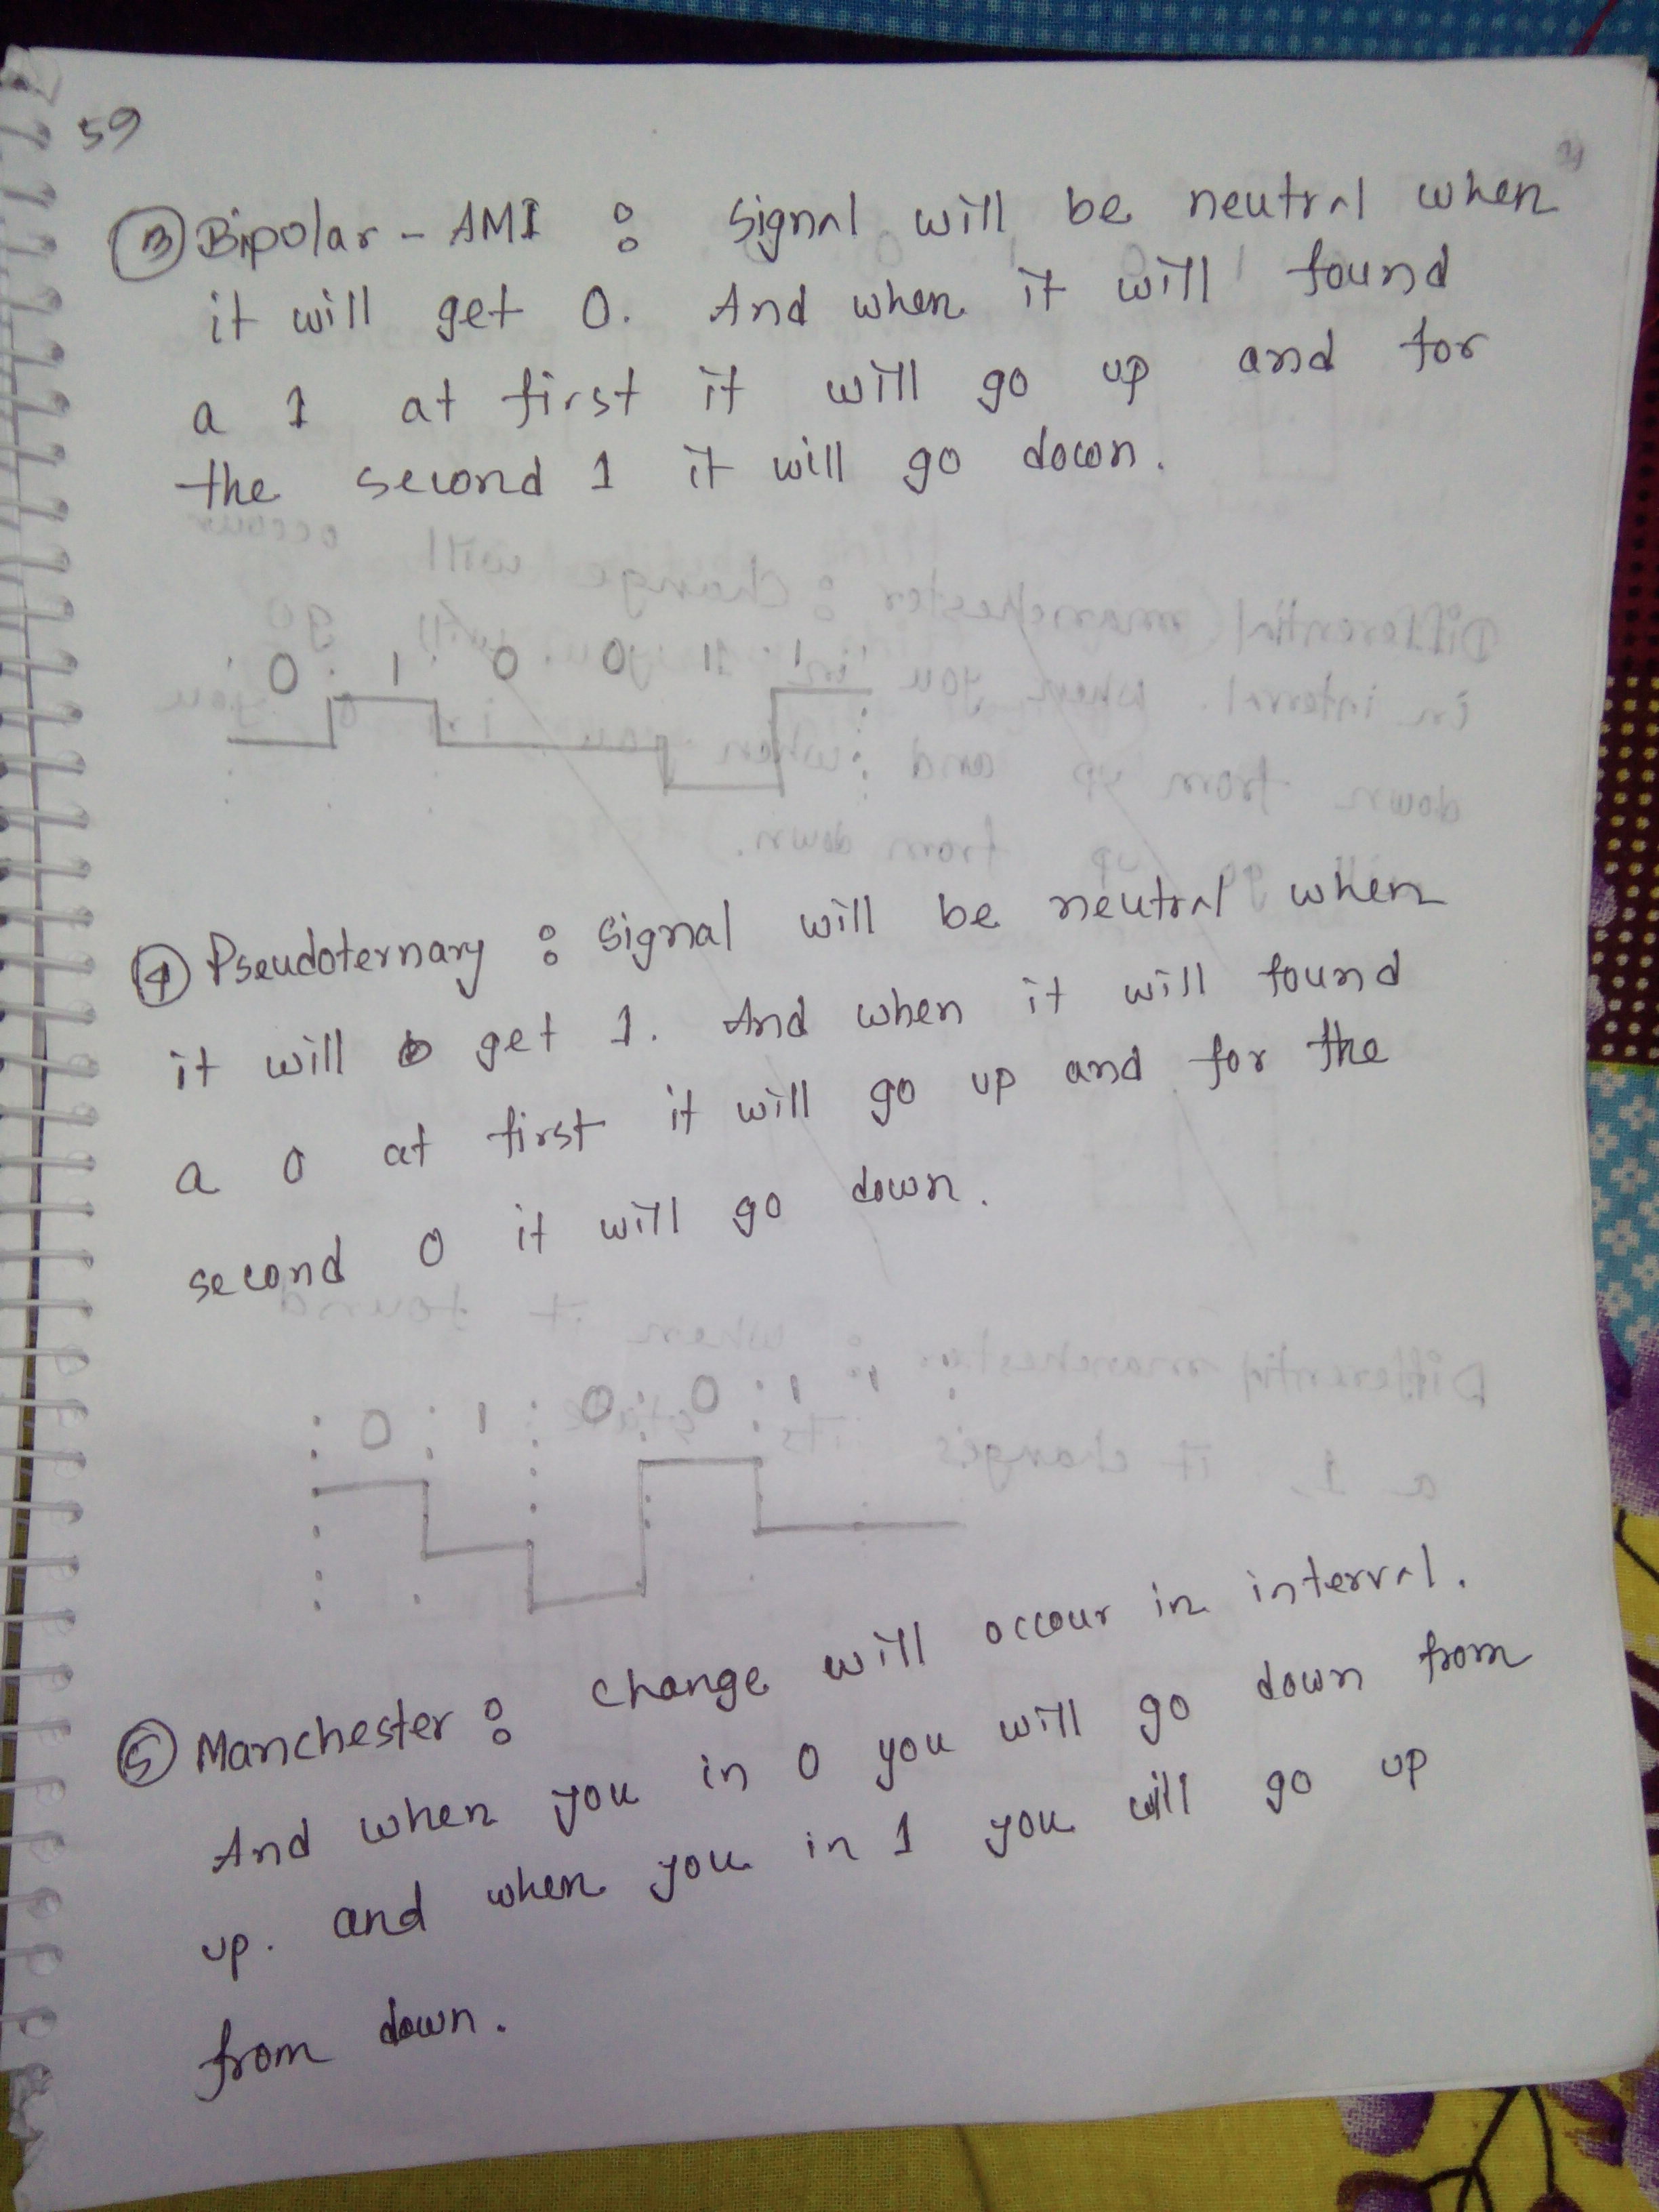 59
③ Bipolar - AMI : Signal will be neutral when
it will get 0. And when it will found
a 1 at first it will go up and for
the second 1 it will go down.
0 1 0 0 1 1
④ Pseudoternary : Signal will be neutral when
it will get 1. And when it will found
a 0 at first it will go up and for the
second 0 it will go down.
0 1 0 0 1 1
⑤ Manchester : Change will occour in interval.
And when you in 0 you will go down from
up. and when you in 1 you will go up
from down.